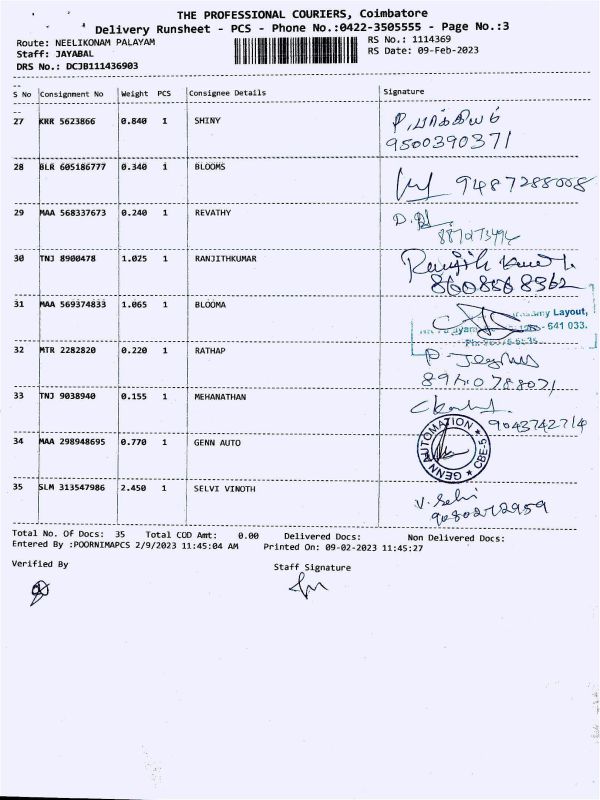 THE PROFESSIONAL COURIERS, Coimbatore
Delivery Runsheet - PCS - Phone No.:0422-3505555 - Page No.:3
Route: NEELIKONAM PALAYAM
RS No.: 1114369
Staff: JAYABAL
RS Date: 09-Feb-2023
DRS No.: DCJB111436903
S No Consignment No Weight PCS Consignee Details Signature
27 KRR 5623866 0.840 1 SHINY
P. பாக்கியம்
9500390371
28 BLR 605186777 0.340 1 BLOOMS
9487288008
29 MAA 568337673 0.240 1 REVATHY
30 TNJ 8900478 1.025 1 RANJITHKUMAR
Ranjith Kumar
8608568362
31 MAA 569374833 1.065 1 BLOOMA
Layout,
- 641 033.
32 MTR 2282820 0.220 1 RATHAP
33 TNJ 9038940 0.155 1 MEHANATHAN
9043742714
34 MAA 298948695 0.770 1 GENN AUTO
GENN AUTOMATION ★ CBE-5 ★
35 SLM 313547986 2.450 1 SELVI VINOTH
V. Selvi
9080272959
Total No. Of Docs: 35 Total COD Amt: 0.00 Delivered Docs: Non Delivered Docs:
Entered By :POORNIMAPCS 2/9/2023 11:45:04 AM Printed On: 09-02-2023 11:45:27
Verified By
Staff Signature